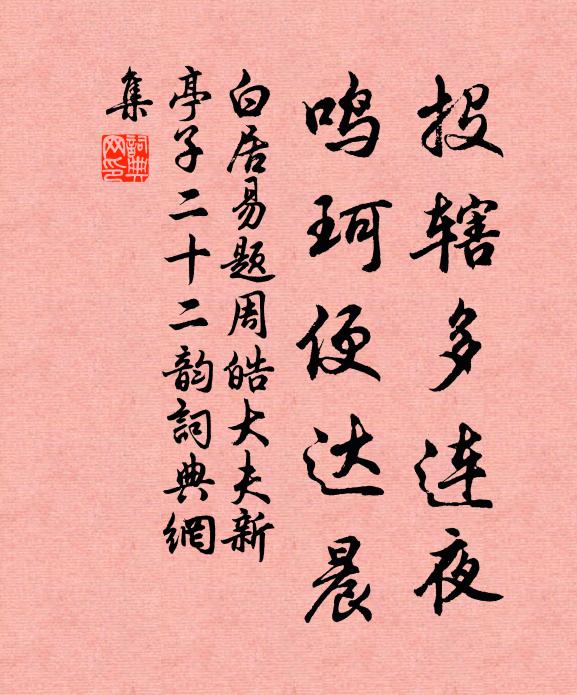 投辖多连夜
鸣珂便达晨
白居易题周皓大夫新
亭子二十二韵詞典網
集
詞典网印